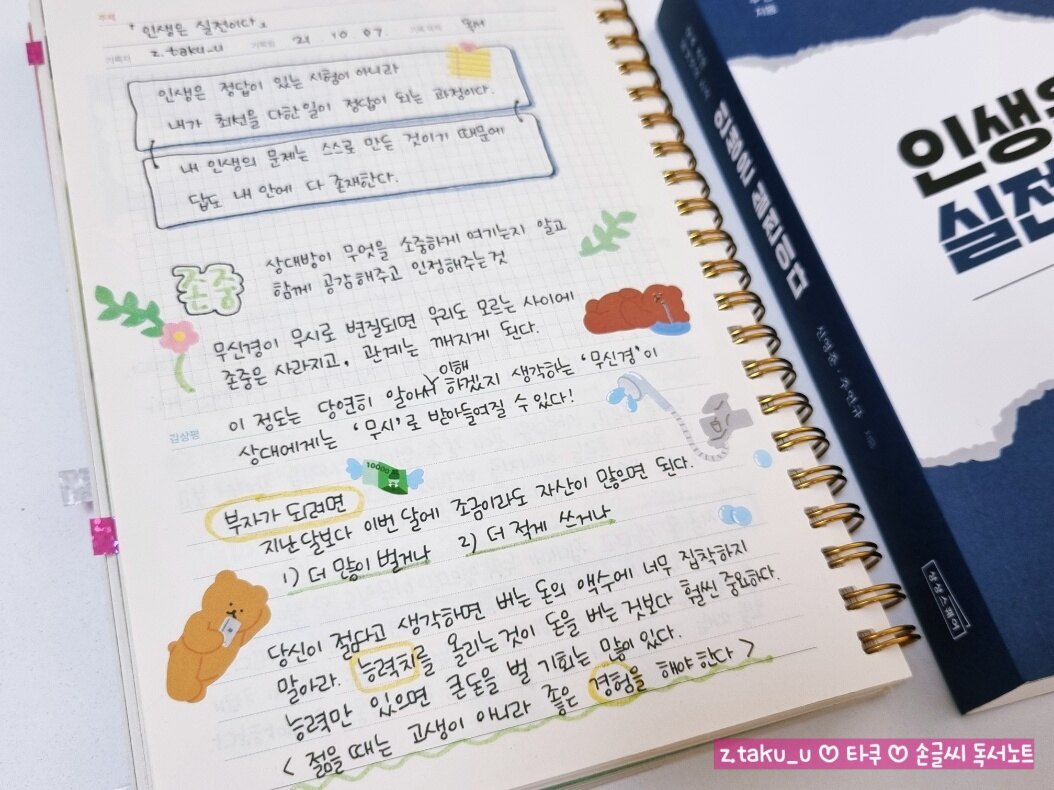 제목 「인생은 실전이다」
기록자 z.taku_u 기록일 21 10. 07. 기록 대상 독서
인생은 정답이 있는 시험이 아니라
내가 최선을 다한 일이 정답이 되는 과정이다.
내 인생의 문제는 스스로 만든 것이기 때문에
답도 내 안에 다 존재한다.
존중
상대방이 무엇을 소중하게 여기는지 알고
함께 공감해주고 인정해주는것
무신경이 무시로 변질되면 우리도 모르는 사이에
존중은 사라지고, 관계는 깨지게 된다.
이 정도는 당연히 알아서 이해 하겠지 생각하는 '무신경'이
감상평
상대에게는 '무시'로 받아들여질 수 있다!
10000
부자가 되려면
지난달보다 이번 달에 조금이라도 자산이 많으면 된다.
1) 더 많이 벌거나 2) 더 적게 쓰거나
당신이 젊다고 생각하면 버는 돈의 액수에 너무 집착하지
말아라. 능력치를 올리는것이 돈을 버는 것보다 훨씬 중요하다.
능력만 있으면 큰돈을 벌 기회는 많이 있다.
< 젊을 때는 고생이 아니라 좋은 경험을 해야 한다 >
지음
인생은 실전이다
신영준·주언규 지음
상상스퀘어
인생은
실전
z.taku_u ♡ 타쿠 ♡ 손글씨 독서노트